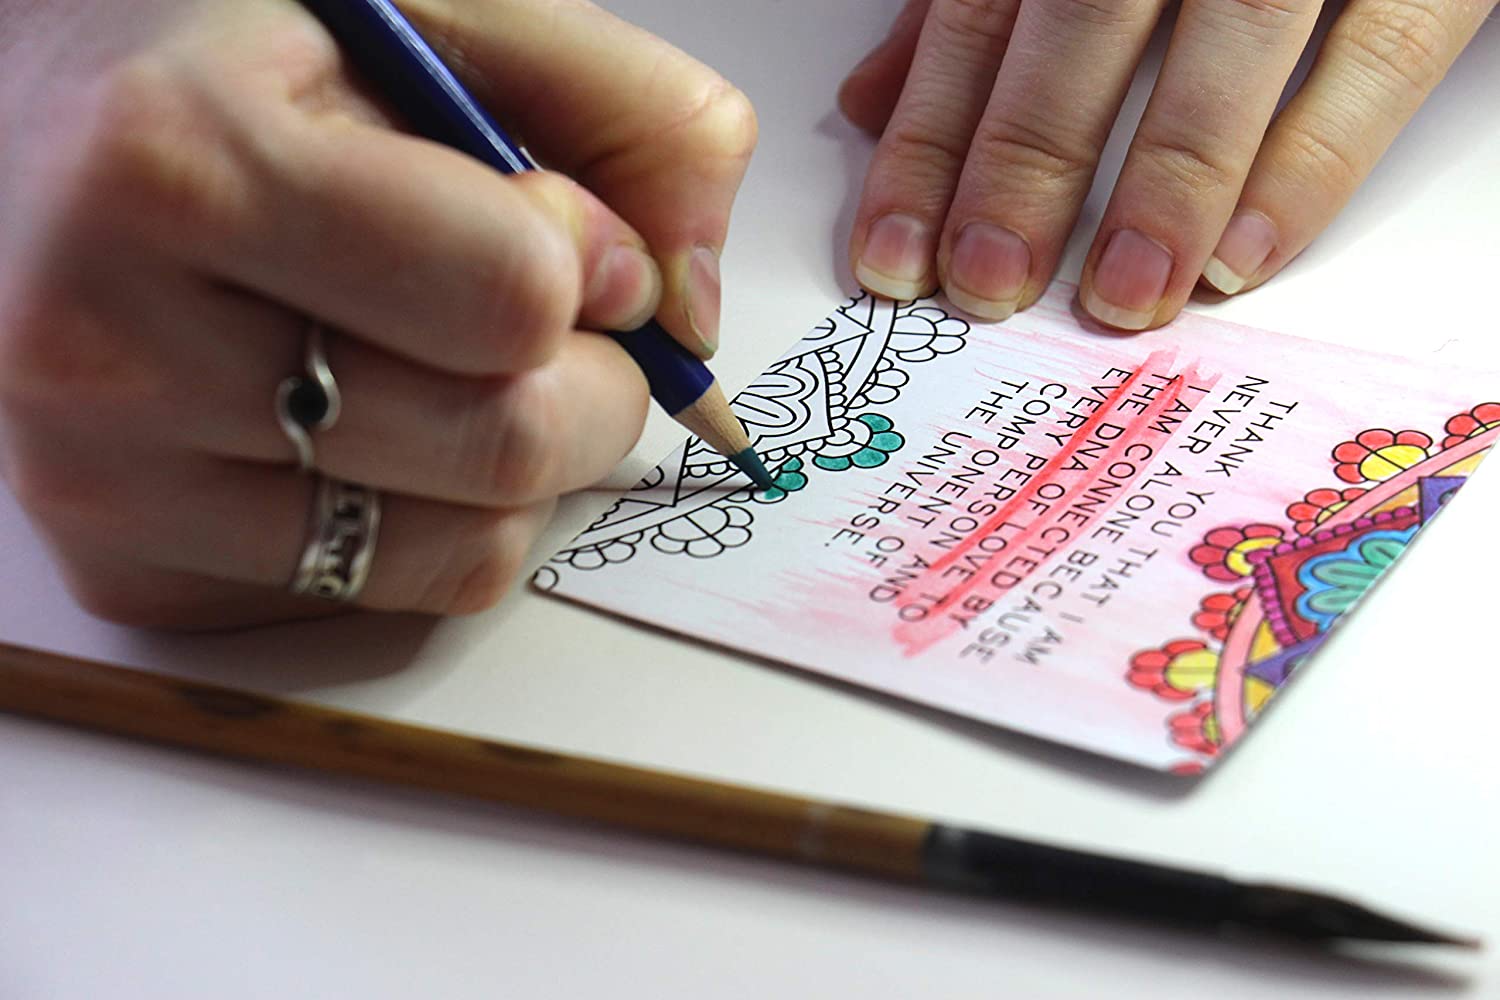 THANK YOU THAT I AM
NEVER ALONE BECAUSE
I AM CONNECTED BY
THE DNA OF LOVE TO
EVERY PERSON AND
COMPONENT OF
THE UNIVERSE.